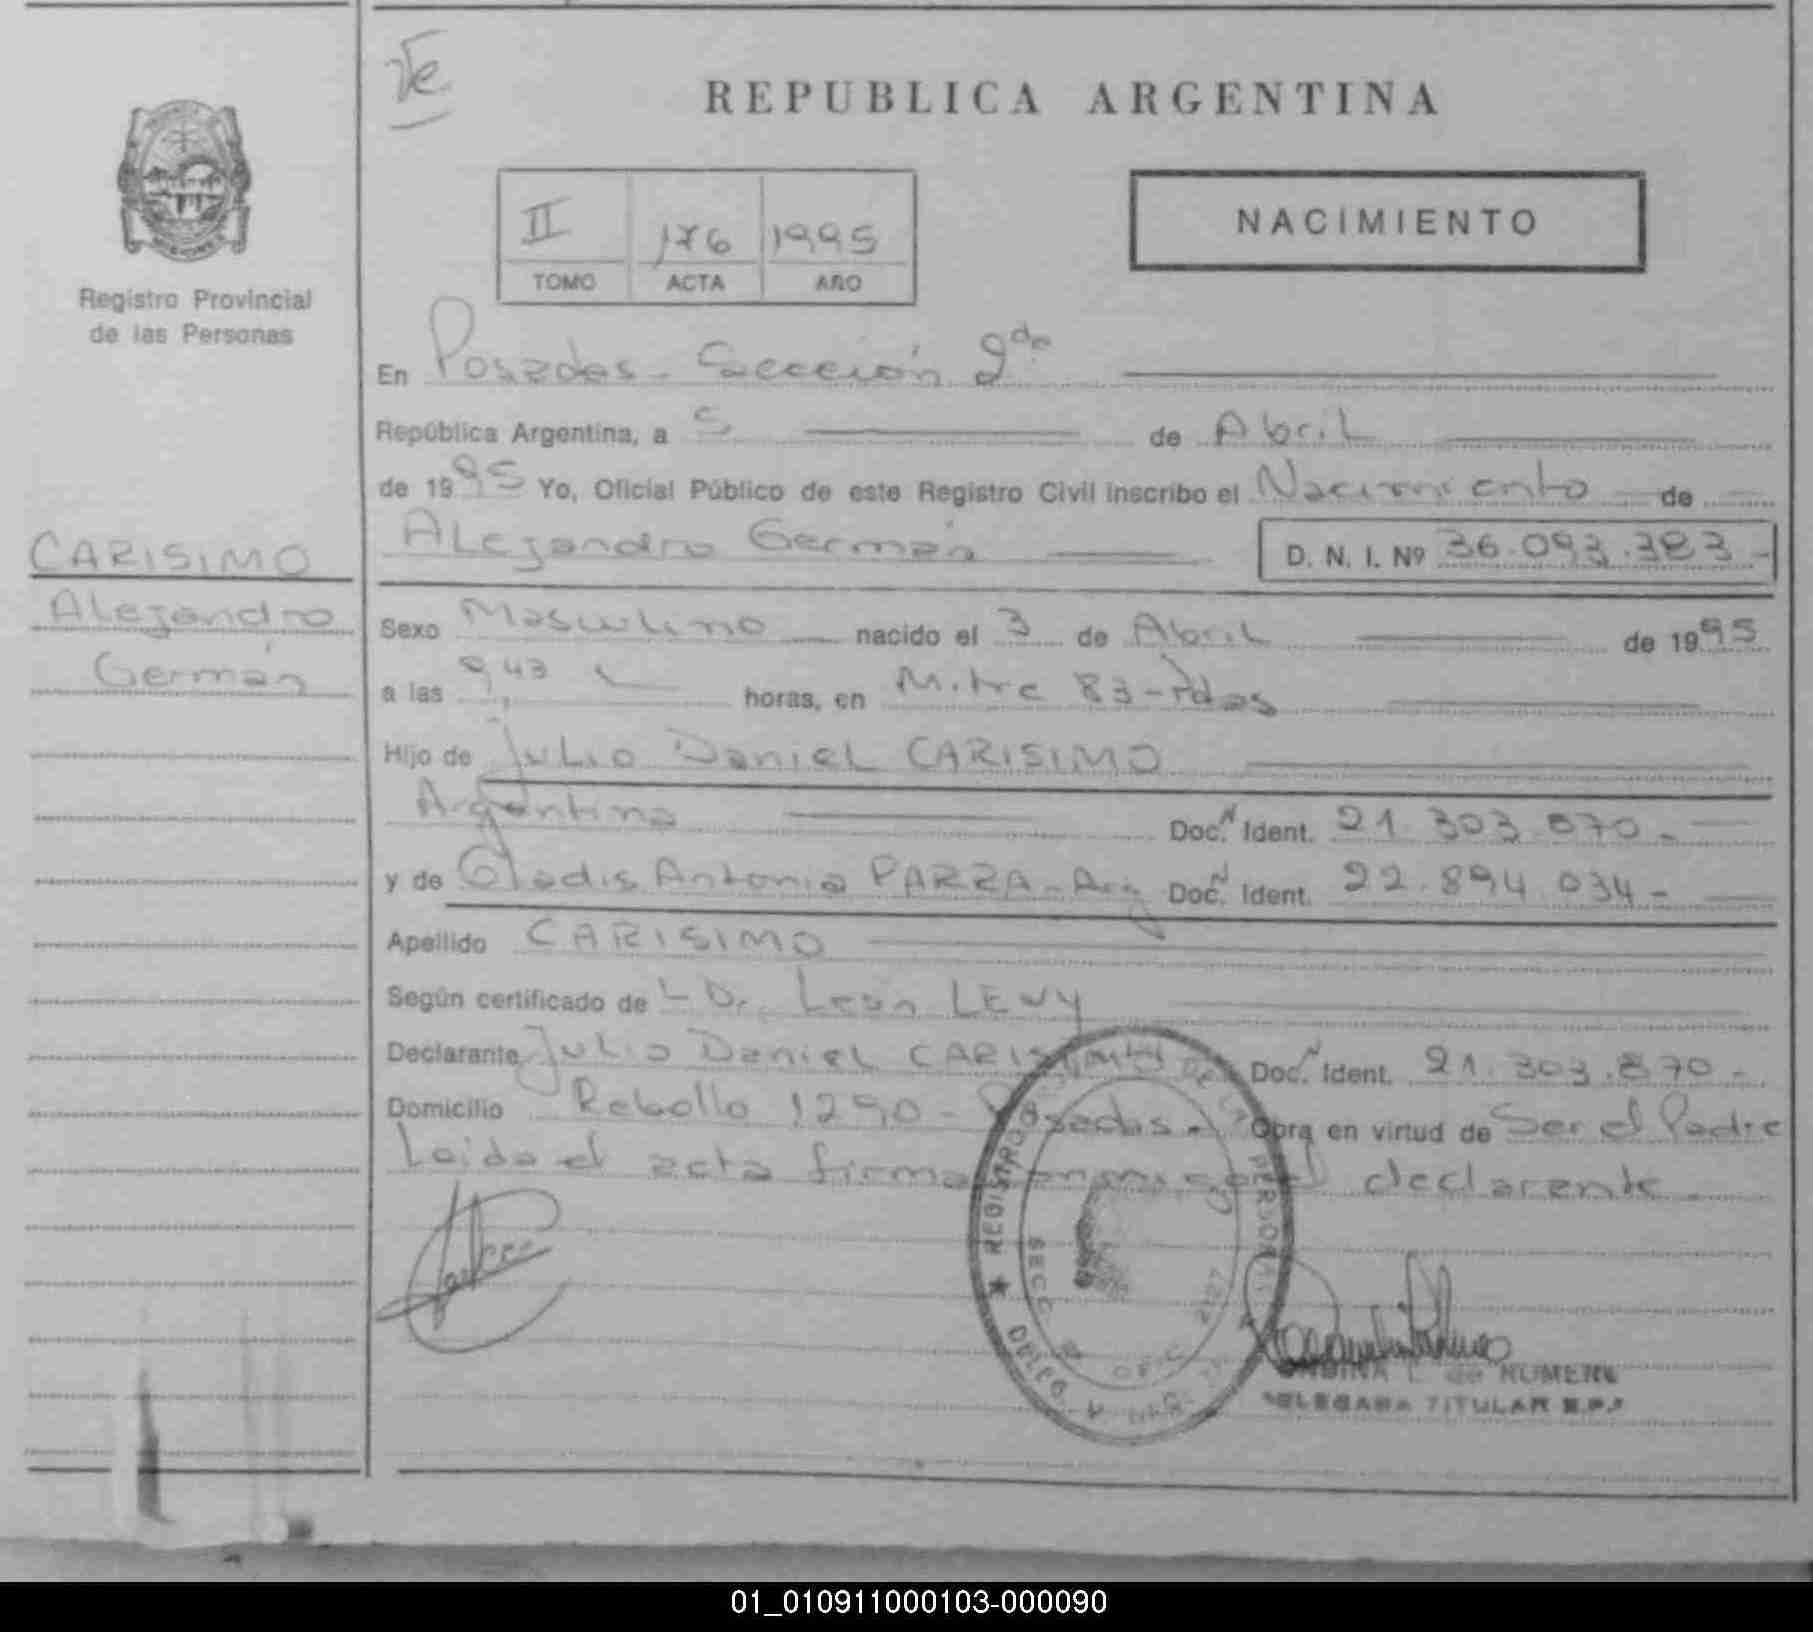 REPUBLICA ARGENTINA
II 176 1995
TOMO ACTA AÑO
NACIMIENTO
Registro Provincial
de las Personas
En Posadas - Seccción 2da
República Argentina, a 5 de Abril
de 1995 Yo, Oficial Público de este Registro Civil inscribo el Nacimiento de
Alejandro Germán D. N. I. Nº 36.093.383-
CARISIMO
Alejandro
Germán
Sexo Masculino nacido el 3 de Abril de 1995
a las 9,43 horas, en Mitre 83-Pdas
Hijo de Julio Daniel CARISIMO
Argentina Doc. N Ident. 21.303.870-
y de Gladis Antonia PARRA - Arg Doc. N Ident. 22.894.034-
Apellido CARISIMO
Según certificado de L Dr. León LEVY
Declarante Julio Daniel CARISIMO Doc. N Ident. 21.303.870-
Domicilio Rebollo 1290 - Posadas - Obra en virtud de Ser el Padre
Leida el acta firma conmigo el declarante.
REGISTRO DE LAS PERSONAS
SECC 2 OFIC 2127
de ROMERO
DELEGADA TITULAR R.P.
01_010911000103-000090